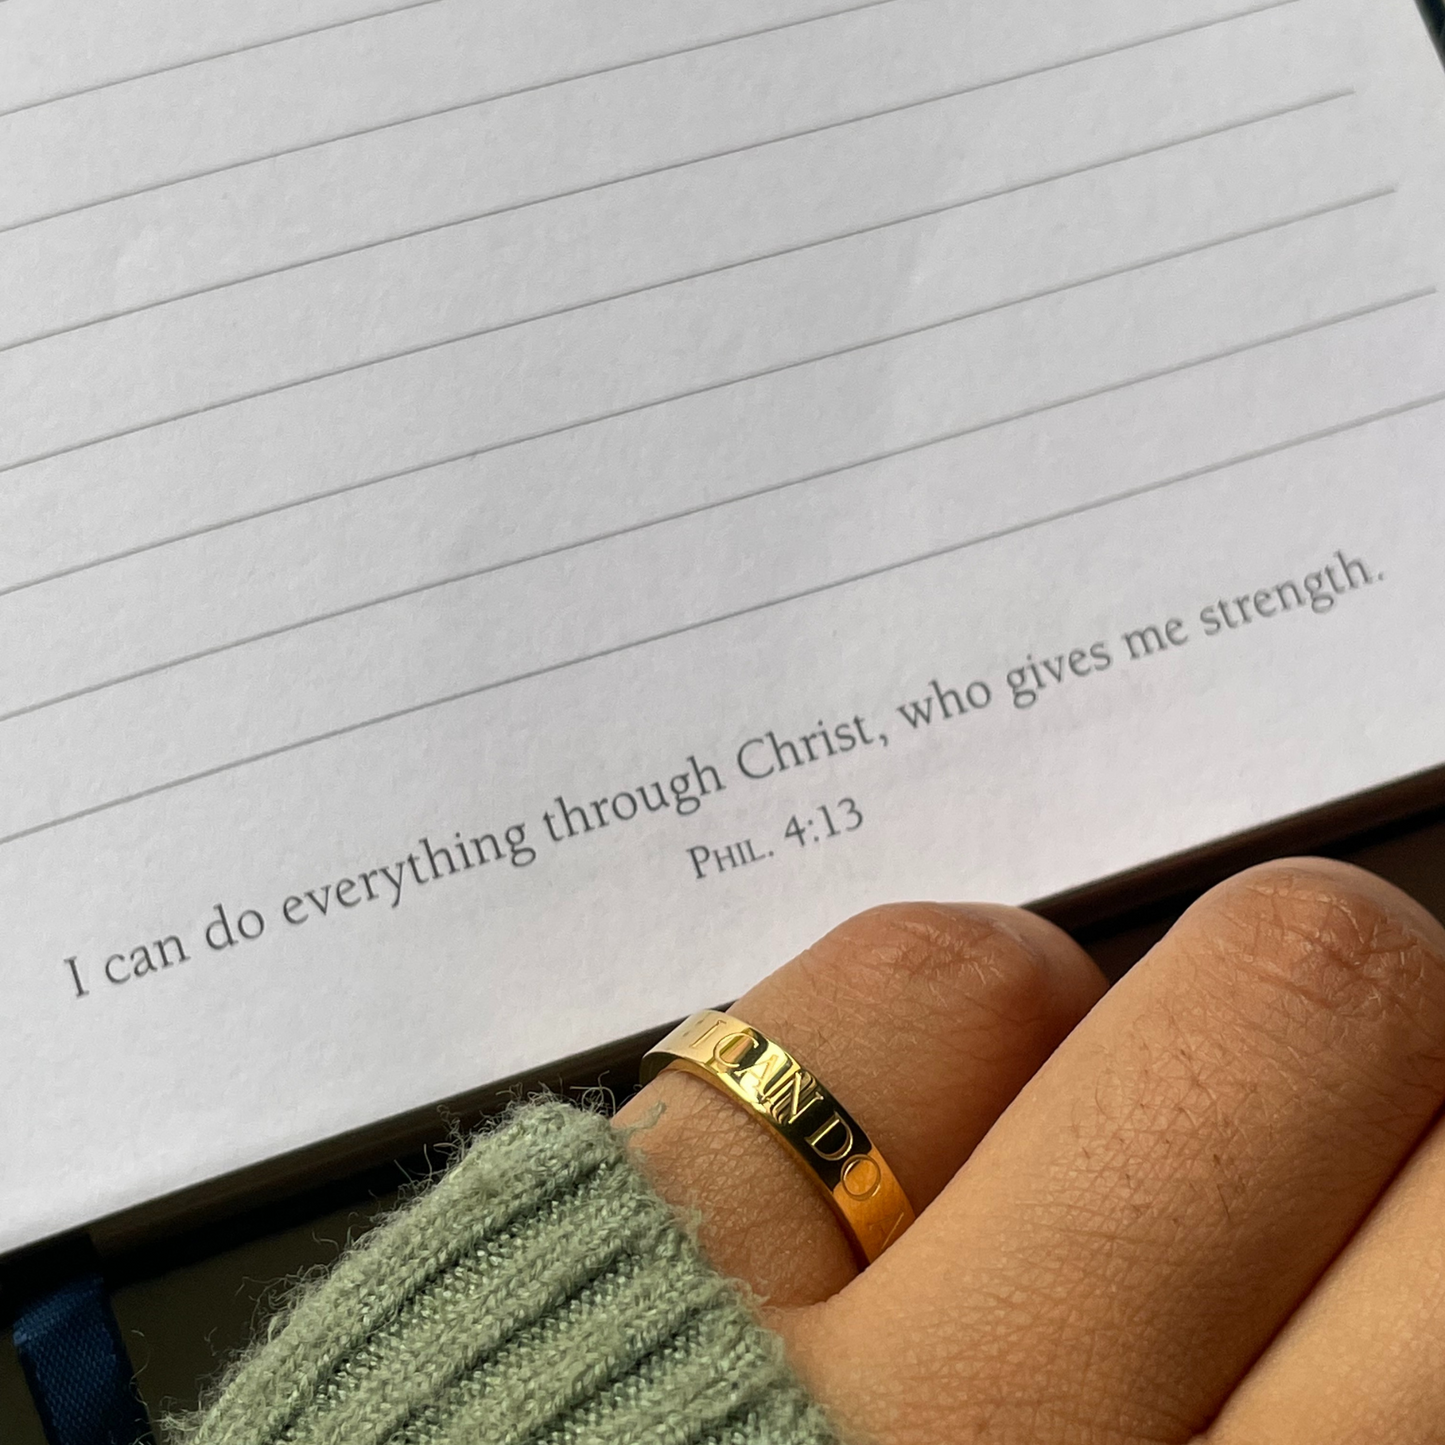 I can do everything through Christ, who gives me strength.
PHIL. 4:13
I CAN DO